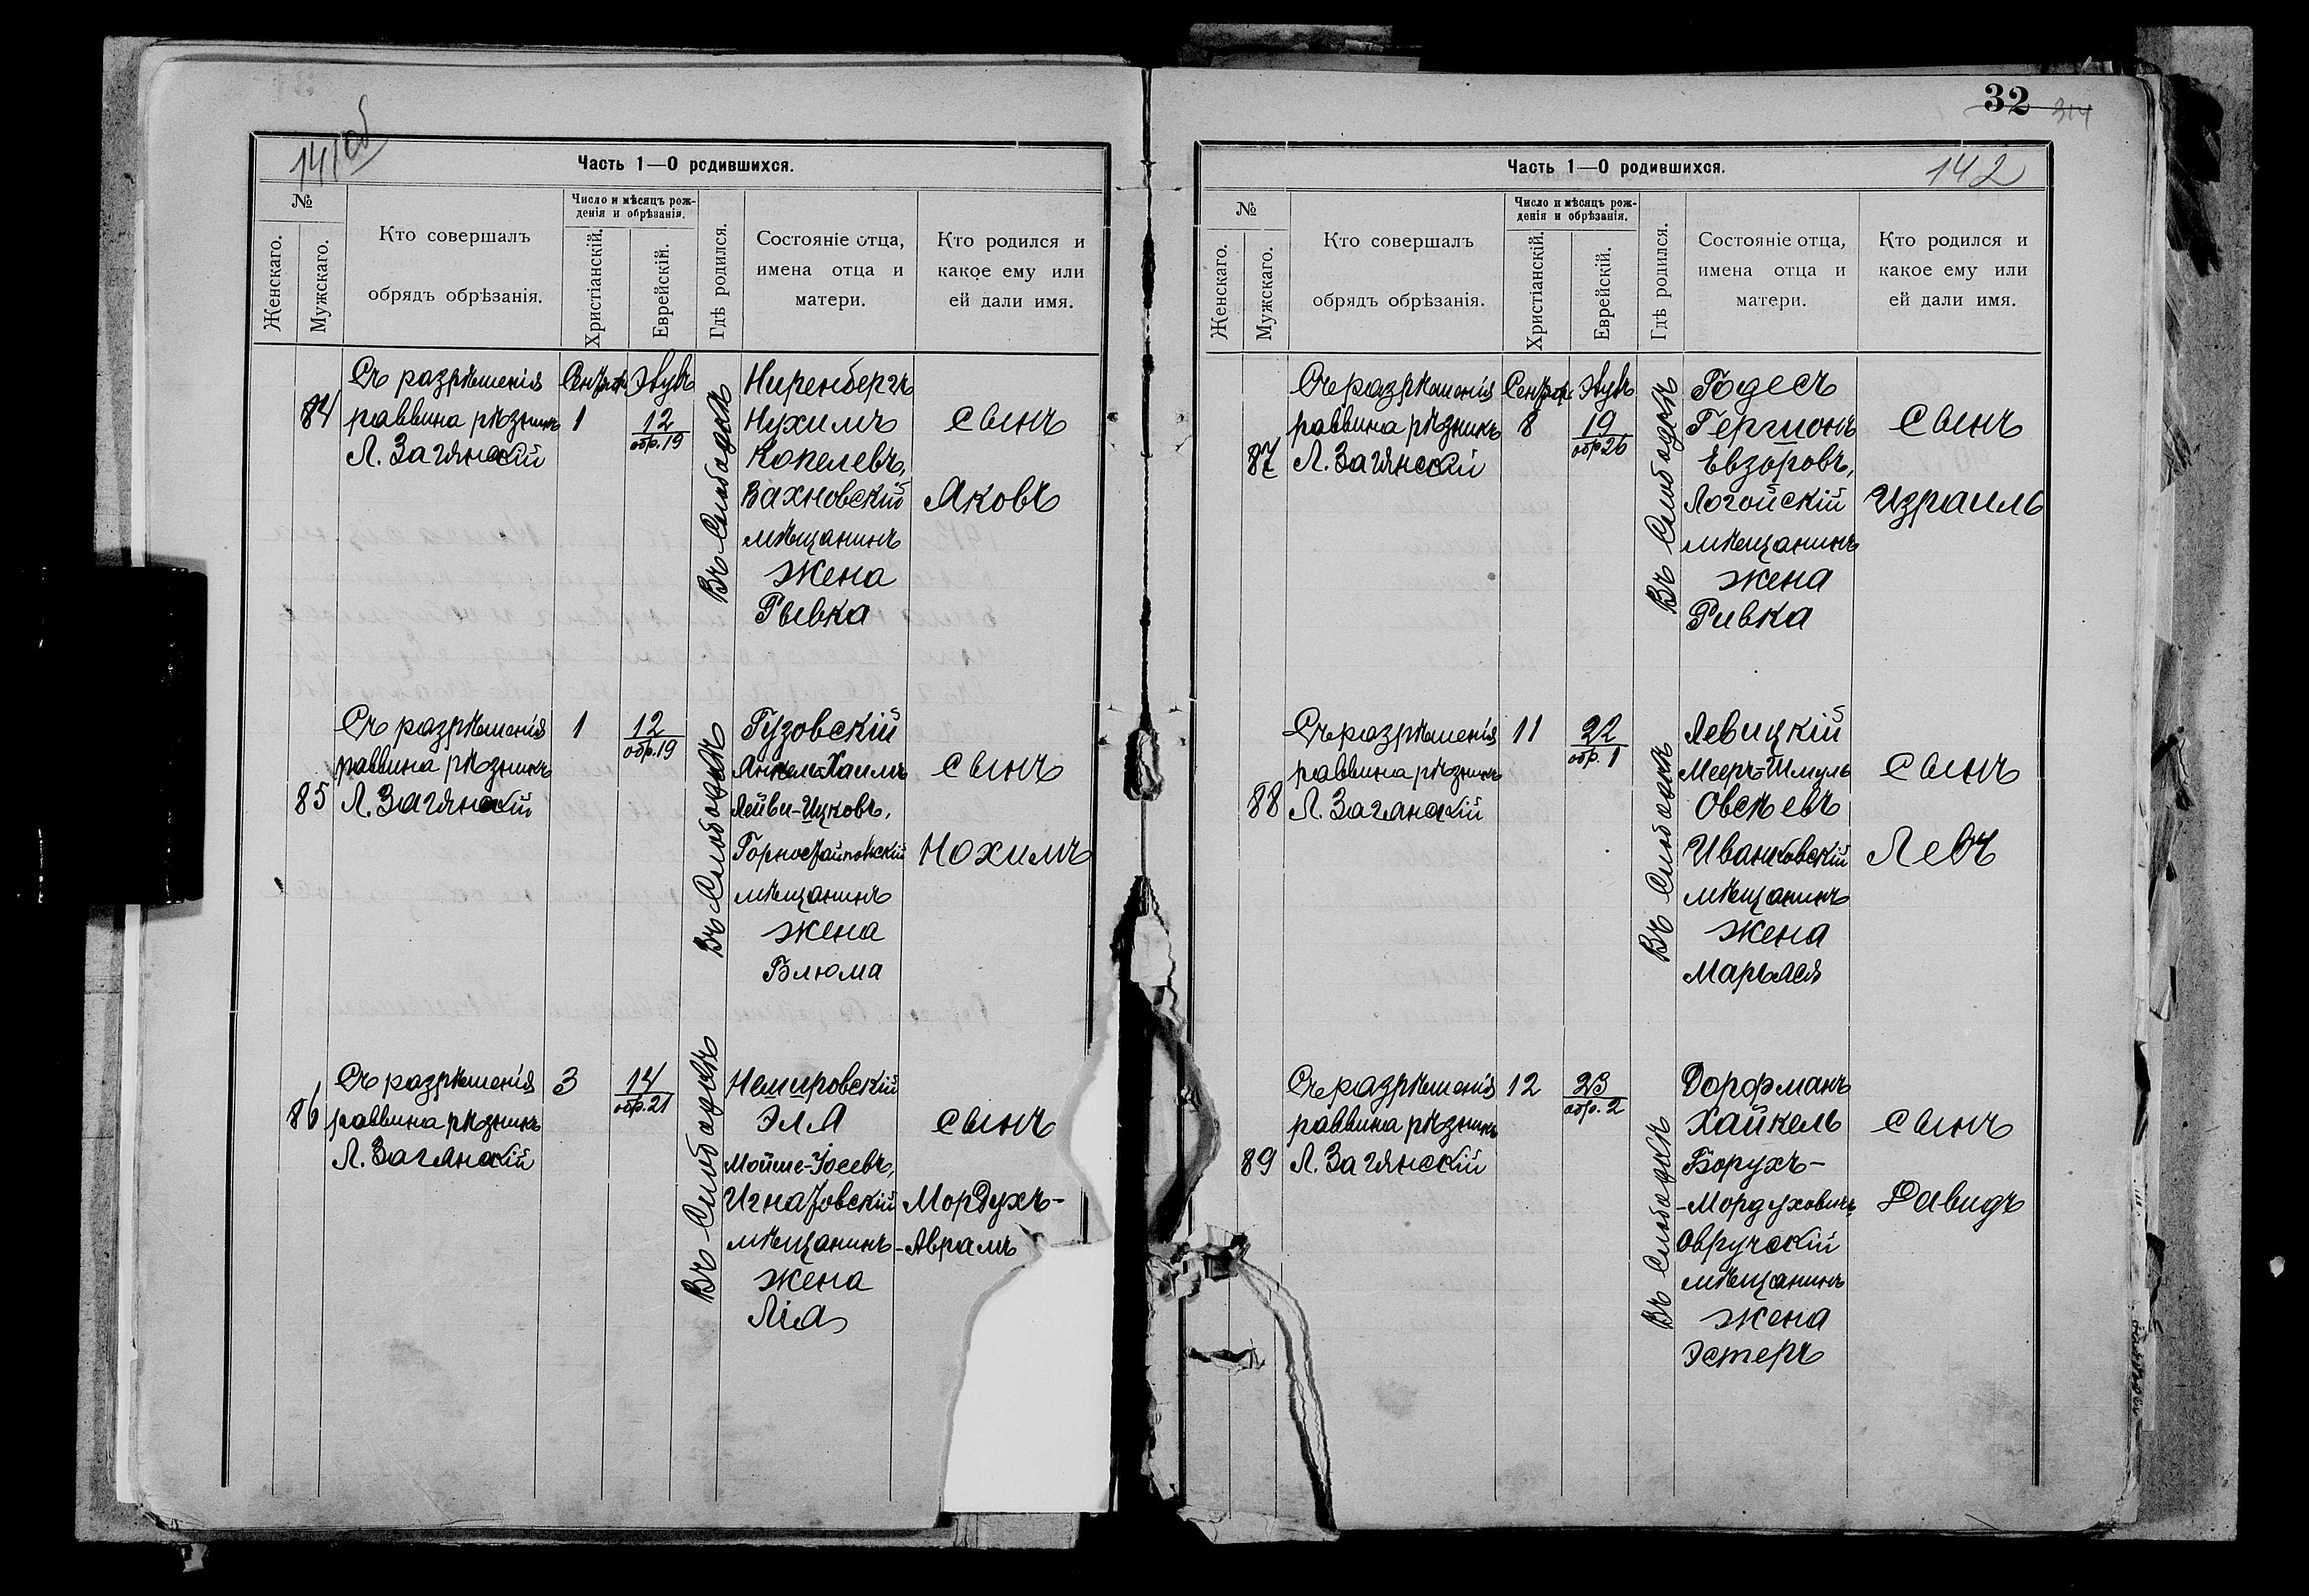 141об
Часть 1—О родившихся.
№
Женскаго.
Мужскаго.
Кто совершалъ
обрядъ обрѣзанія.
Число и мѣсяцъ рож-
денія и обрѣзанія.
Христіанскій.
Еврейскій.
Гдѣ родился.
Состояніе отца,
имена отца и
матери.
Кто родился и
какое ему или
ей дали имя.
84
Съ разрѣшенія
раввина рѣзникъ
Л. Загянскій
1
Элулъ
12
обр. 19
Въ Слободкѣ
Ниренбергъ
Нухимъ
Копелевъ,
Вахновскій
мѣщанинъ
жена
Рывка
сынъ
Яковъ
85
Съ разрѣшенія
раввина рѣзникъ
Л. Загянскій
1
12
обр. 19
Въ Слободкѣ
Гузовскій
Анкель-Хаимъ
Лейви-Ицковъ,
Горностайпольскій
мѣщанинъ
жена
Блюма
сынъ
Нохимъ
86
Съ разрѣшенія
раввина рѣзникъ
Л. Загянскій
3
14
обр. 21
Въ Слободкѣ
Немировскій
Эля
Мойше-Іосевъ,
Игнатовскій
мѣщанинъ
жена
Лія
сынъ
Мордухъ-
-Аврамъ
32
314
142
Часть 1—О родившихся.
№
Женскаго.
Мужскаго.
Кто совершалъ
обрядъ обрѣзанія.
Число и мѣсяцъ рож-
денія и обрѣзанія.
Христіанскій.
Еврейскій.
Гдѣ родился.
Состояніе отца,
имена отца и
матери.
Кто родился и
какое ему или
ей дали имя.
87
Съ разрѣшенія
раввина рѣзникъ
Л. Загянскій
8
Элулъ
19
обр 26
Въ Слободкѣ
Годесъ
Гершонъ
Евзоровъ,
Логойскій
мѣщанинъ
жена
Ривка
сынъ
Израиль
88
Съ разрѣшенія
раввина рѣзникъ
Л. Загянскій
11
22
обр. 1
Въ Слободкѣ
Левицкій
Мееръ-Шмуль
Овсѣевъ
Иванковскій
мѣщанинъ
жена
Марьяся
сынъ
Левъ
89
Съ разрѣшенія
раввина рѣзникъ
Л. Загянскій
12
23
обр. 2
Въ Слободкѣ
Дорфманъ
Хайкель
Борухъ-
-Мордуховичъ
Овручскій
мѣщанинъ
жена
Эстеръ
сынъ
Давидъ